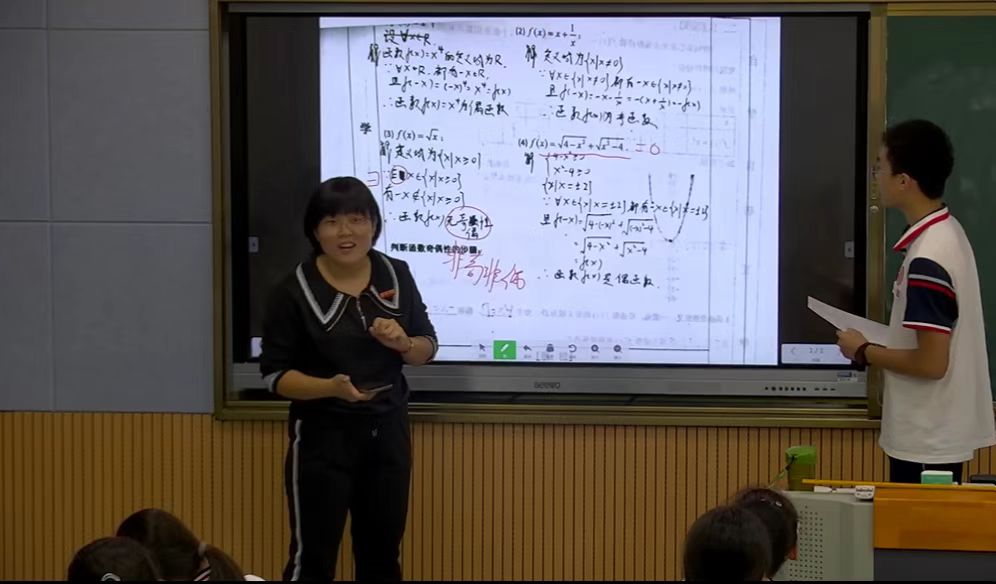 设∀x∈R
解 函数f(x)=x⁴的定义域为R.
∵∀x∈R.都有-x∈R.
且f(-x)=(-x)⁴=x⁴=f(x)
∴函数f(x)=x⁴为偶函数
(2) f(x)=x+1/x;
解 定义域为{x|x≠0}
∵∀x∈{x|x≠0},都有-x∈{x|x≠0}
且f(-x)=-x-1/x=-(x+1/x)=-f(x)
∴函数f(x)为奇函数
学
(3) f(x)=√x;
解 定义域为{x|x≥0}
∃
x∈{x|x≥0}
有-x∉{x|x≥0}
∴函数f(x)无奇偶性
非奇非偶
判断函数奇偶性的步骤:
(4) f(x)=√(4-x²)+√(x²-4). =0
解 {4-x²≥0
x²-4≥0
{x|x=±2}
∵∀x∈{x|x=±2},都有-x∈{x|x=±2}
且f(-x)=√(4-(-x)²)+√((-x)²-4)
=√(4-x²)+√(x²-4)
=f(x)
∴函数f(x)是偶函数.
seewo